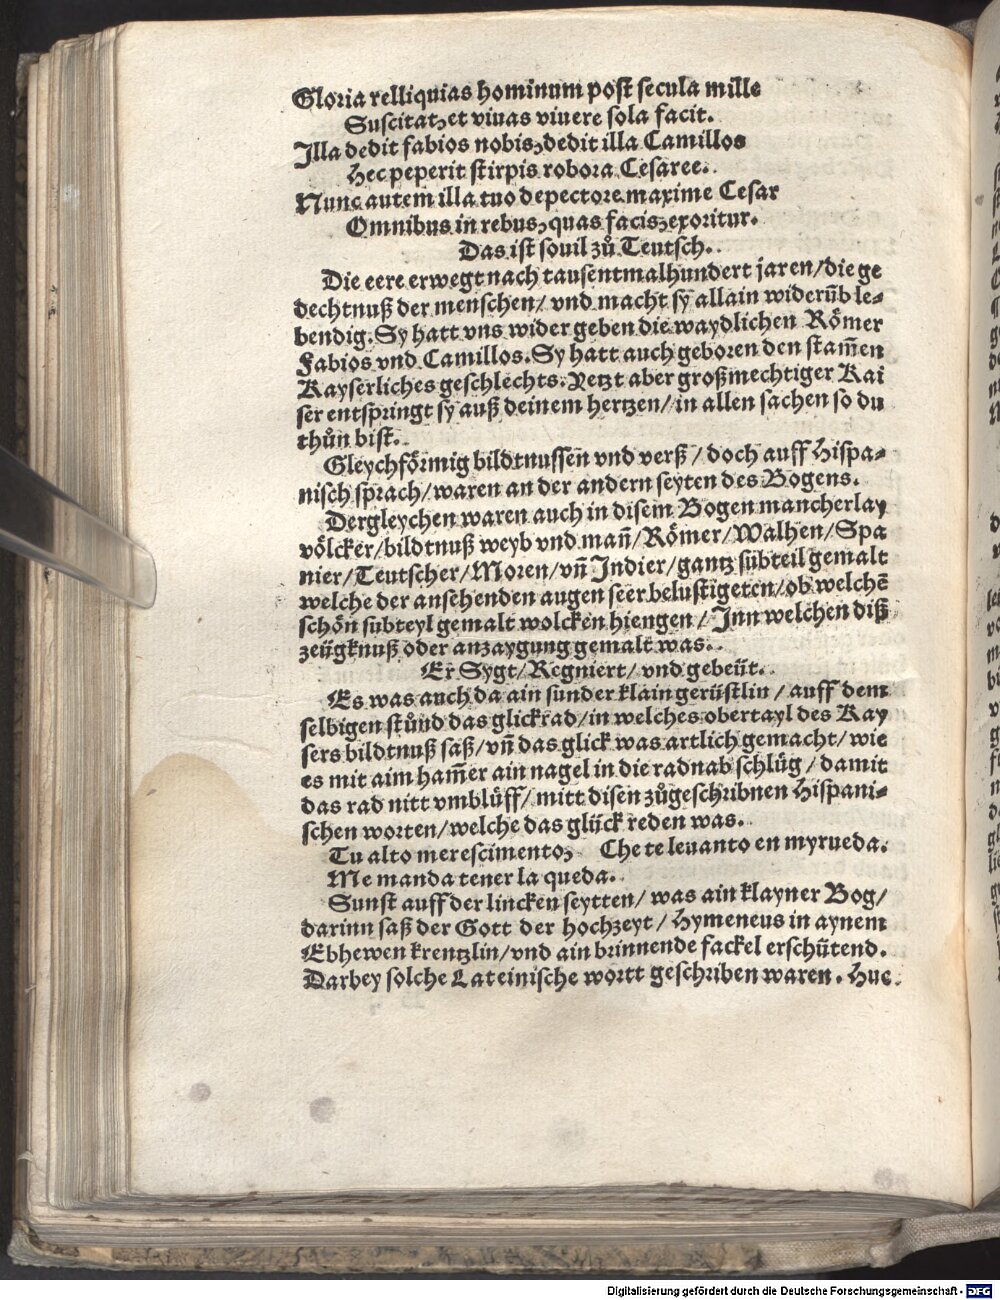 Gloria relliquias hominum post secula mille
Suscitat, et viuas viuere sola facit.
Illa dedit fabios nobis, dedit illa Camillos
Hec peperit stirpis robora Cesaree.
Nunc autem illa tuo de pectore maxime Cesar
Omnibus in rebus, quas facis, exoritur.
Das ist souil zů Teutsch.
Die eere erwegt nach tausentmalhundert jaren/ die ge
dechtnuß der menschen/ vnd macht sy allain widerūb le-
bendig. Sy hatt vns wider geben die waydlichen Römer
Fabios vnd Camillos. Sy hatt auch geboren den stam̄en
Kayserliches geschlechts. Yetzt aber großmechtiger Kai
ser entspringt sy auß deinem hertzen/ in allen sachen so du
thůn bist.
Gleychförmig bildtnussen vnd verß/ doch auff Hispa-
nisch sprach/ waren an der andern seyten des Bogens.
Dergleychen waren auch in disem Bogen mancherlay
völcker/ bildtnuß weyb vnd man̄/ Römer/ Walhen/ Spa
nier/ Teutscher/ Moren/ vn̄ Indier/ gantz subteil gemalt
welche der ansehenden augen seer belustigeten/ ob welchē
schön subteyl gemalt wolcken hiengen/ Inn welchen diß
zeügknuß oder anzaygung gemalt was.
Er Sygt/ Regniert/ vnd gebeüt.
Es was auch da ain sunder klain gerüstlin/ auff dem
selbigen stůnd das glickrad/ in welches obertayl des Kay
sers bildtnuß saß/ vn̄ das glick was artlich gemacht/ wie
es mit aim ham̄er ain nagel in die radnab schlüg/ damit
das rad nitt vmblüff/ mitt disen zůgeschribnen Hispani-
schen worten/ welche das glück reden was.
Tu alto merescimento, Che te leuanto en myrueda.
Me manda tener la queda.
Sunst auff der lincken seytten/ was ain klayner Bog/
darinn saß der Gott der hochzeyt/ Hymeneus in aynem
Ebhewen krentzlin/ vnd ain brinnende fackel erschütend.
Darbey solche Lateinische wortt geschriben waren. Huc
Digitalisierung gefördert durch die Deutsche Forschungsgemeinschaft - DFG